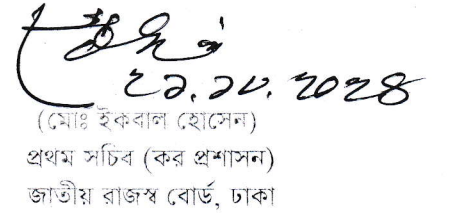 ২৯.১০.২০২৪
(মোঃ ইকবাল হোসেন)
প্রথম সচিব (কর প্রশাসন)
জাতীয় রাজস্ব বোর্ড, ঢাকা